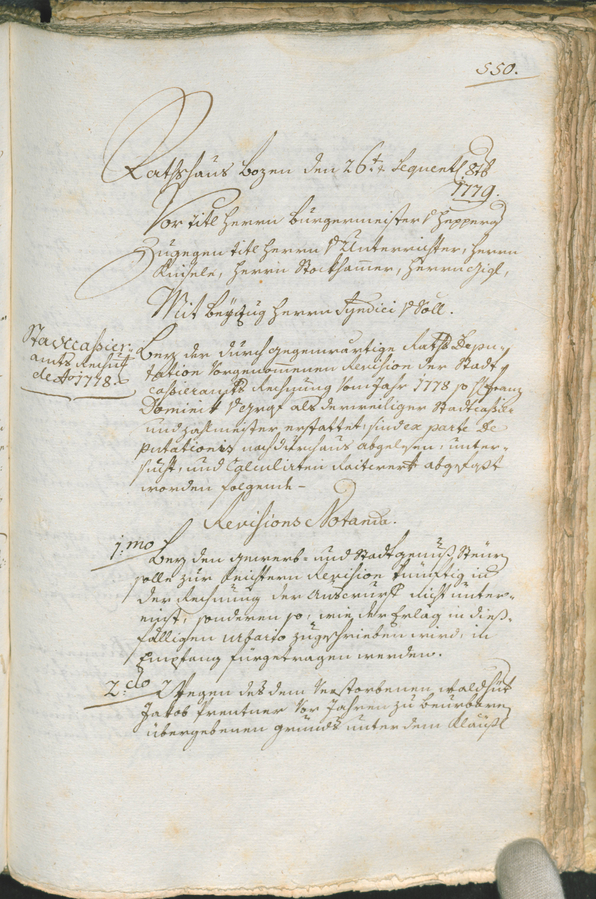 550.
Rathshaus Bozen den 26t. Sequent 8tb
1779.
Vor titl Herrn Burgermeister v Hepperg
Zugegen titl Herrn v Unterrichter, Herrn
Kinsele, Herrn Stockhamer, Herrn Gigl,
Mit beyzug Herrn Syndici v Söll.
Stadtcassier-
amts Rechnung
de Ao 1778.
Bey der durch gegenwärtige Raths Depu-
tation vorgenomenen Revision der Stadt
cassieramts Rechnung vom Jahr 1778 so Hr. Franz
Dominik v Graf als derweiliger Stadtcassier
und zahlmeister erstattet, sind ex parte De
putationis nach durchaus abgelesen, unter-
sucht, und Calculirten Raitwerk abgefaßt
worden folgende -
Revisions Notanda.
1.mo
Bey den gewerb- und Stadtgenuß Steurn
solle zur leichtern Revision künftig in
der Rechnung der Entwurf nicht unter-
einst, sonderen so, wie der Erlag in dieß-
fälligen urbario zugeschrieben wird, in
Empfang fürgetragen werden.
2.do
Wegen des dem Verstorbenen waldhüt
Jakob Prentner Vor Jahren zu beurbaren
übergebenen grunds unter dem